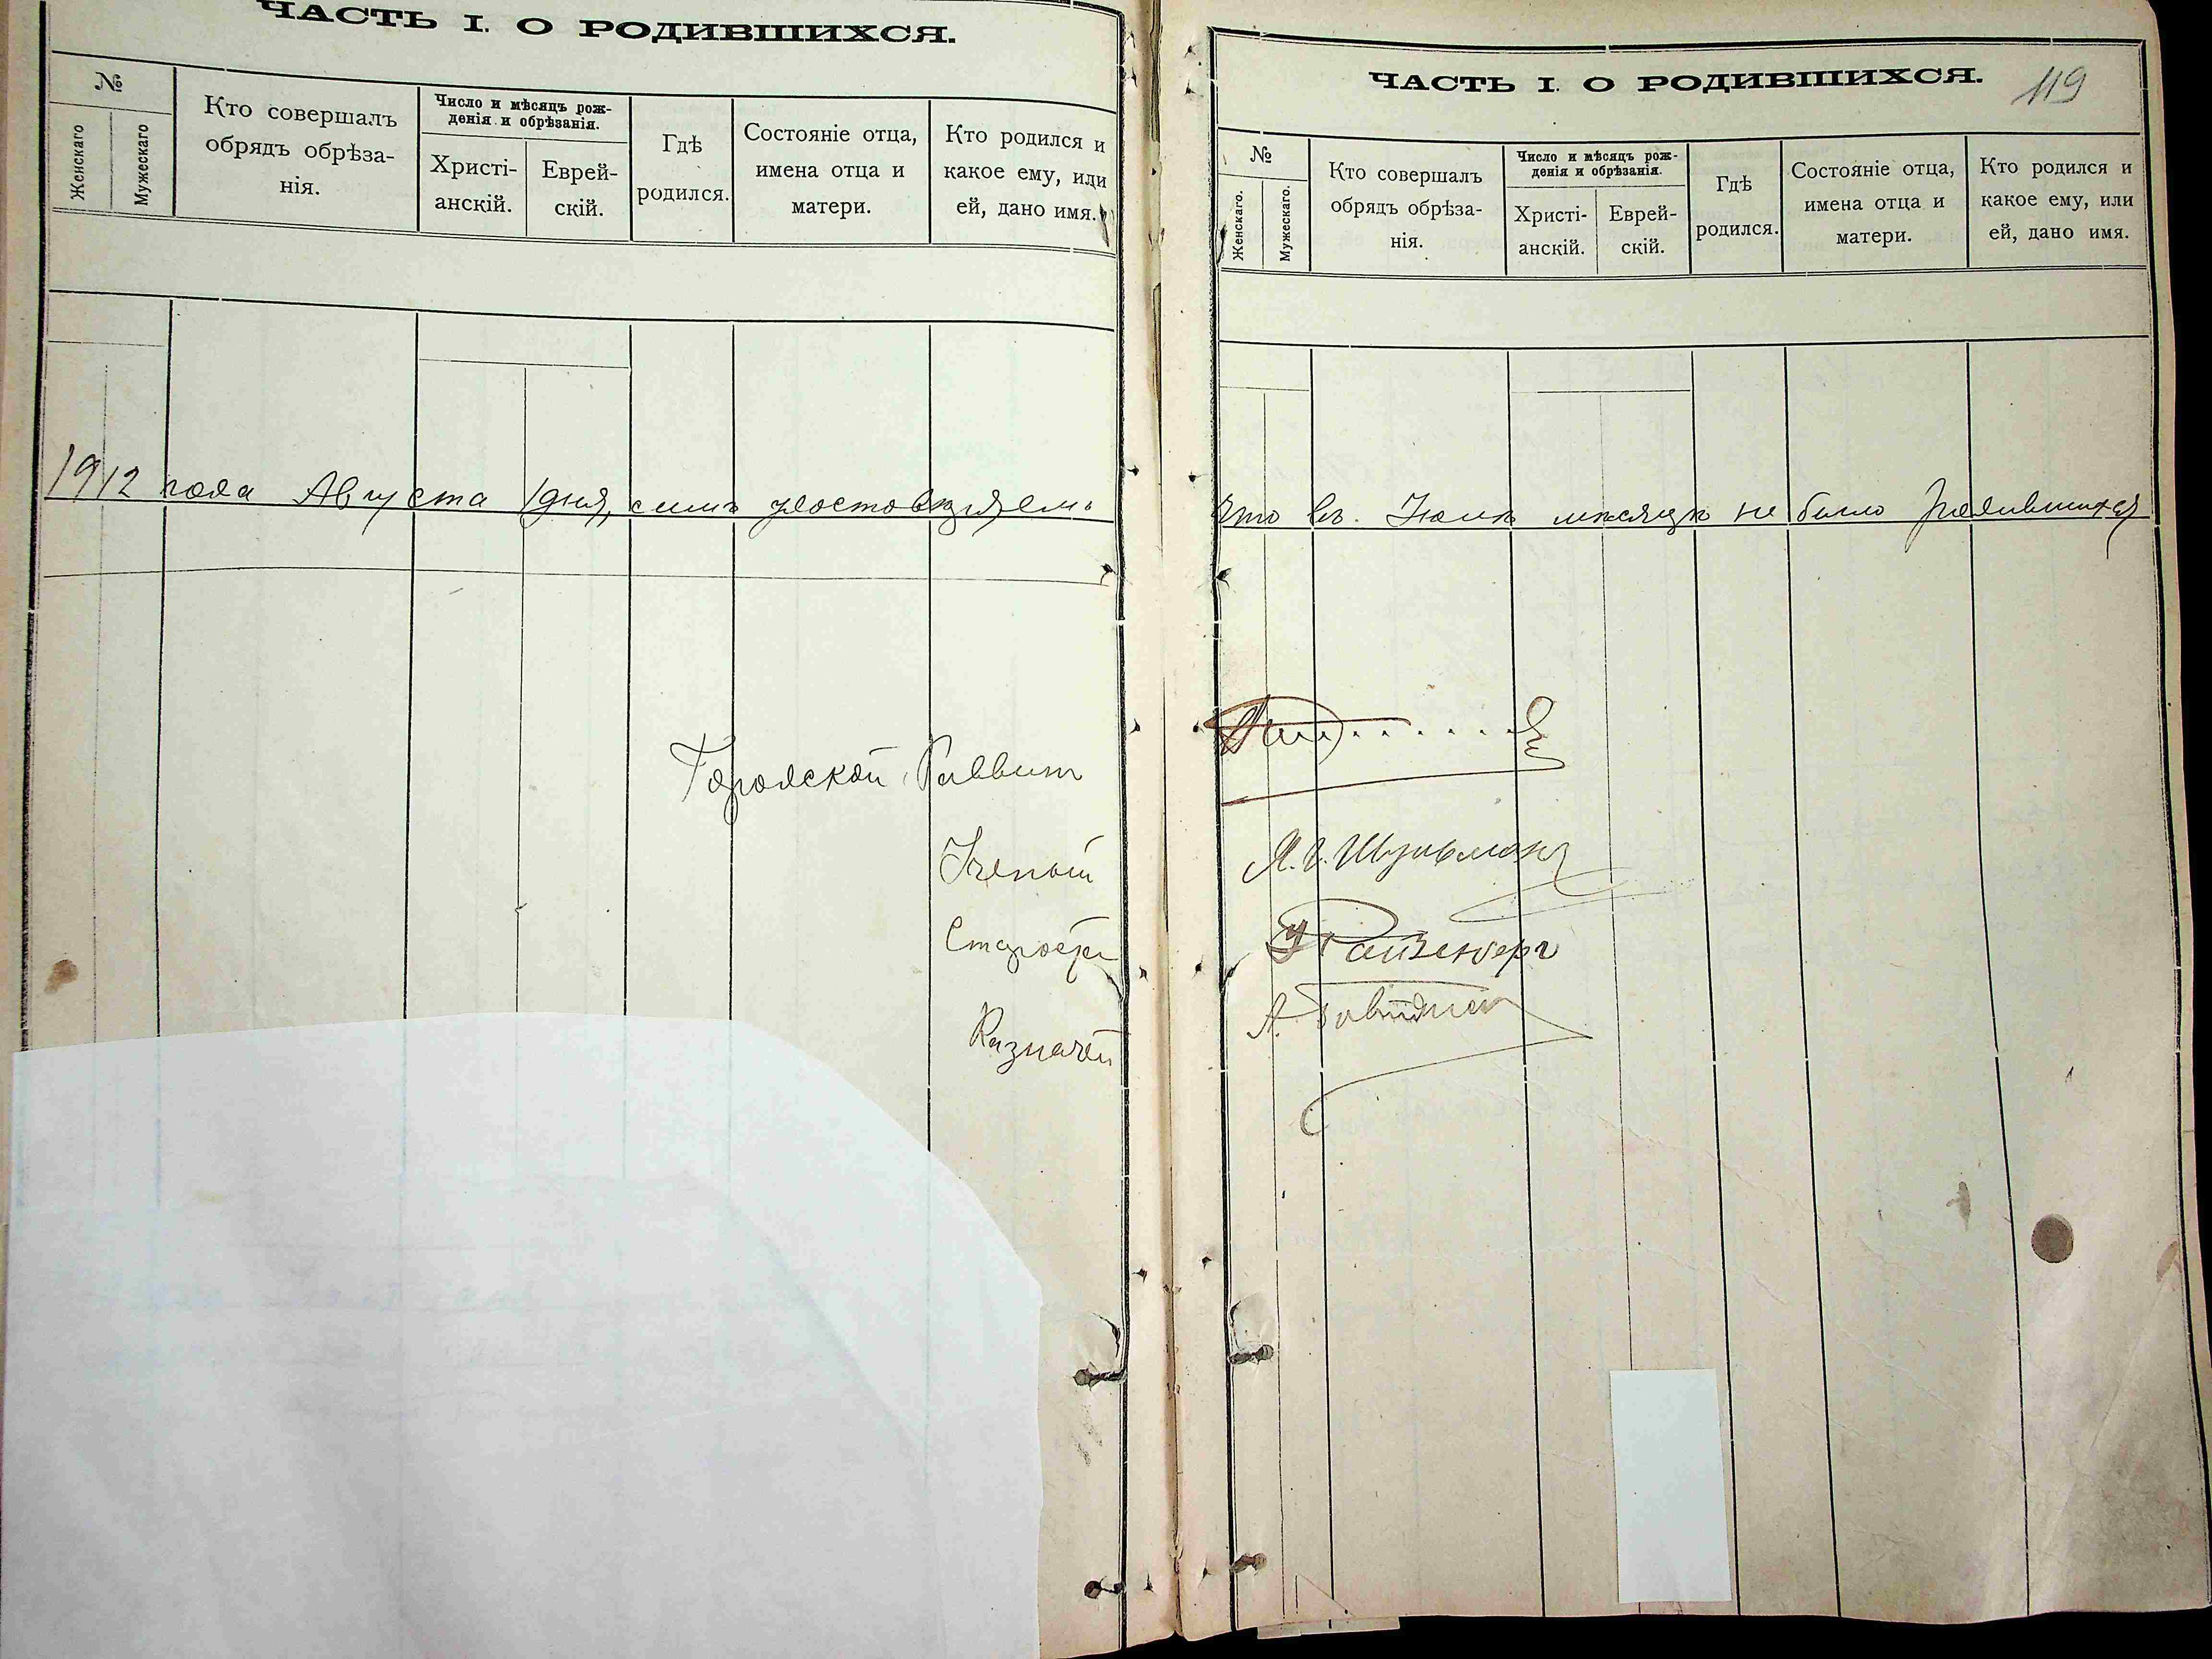 ЧАСТЬ I. О РОДИВШИХСЯ.
№
Женскаго
Мужескаго
Кто совершалъ
обрядъ обрѣза-
нія.
Число и мѣсяцъ рож-
денія и обрѣзанія.
Христі-
анскій.
Еврей-
скій.
Гдѣ
родился.
Состояніе отца,
имена отца и
матери.
Кто родился и
какое ему, или
ей, дано имя.
1912 года Августа 1 дня, симъ удостовѣряемъ
Городской Раввинъ
Ученый
Староста
Казначей
ЧАСТЬ I. О РОДИВШИХСЯ.
119
№
Женскаго.
Мужескаго.
Кто совершалъ
обрядъ обрѣза-
нія.
Число и мѣсяцъ рож-
денія и обрѣзанія.
Христі-
анскій.
Еврей-
скій.
Гдѣ
родился.
Состояніе отца,
имена отца и
матери.
Кто родился и
какое ему, или
ей, дано имя.
что въ Іюлѣ мѣсяцѣ не было родившихся
Шульманъ
Райзенберг
А.